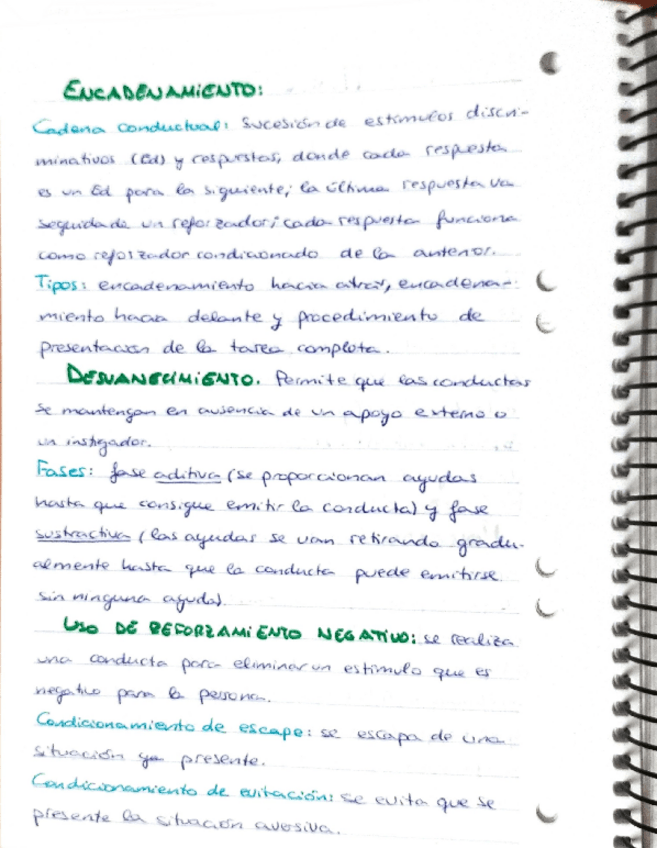 ENCADENAMIENTO:
Cadena conductual: sucesión de estímulos discri-
minativos (Ed) y respuestas, donde cada respuesta
es un Ed para la siguiente; la última respuesta va
seguida de un reforzador; cada respuesta funciona
como reforzador condicionado de la anterior.
Tipos: encadenamiento hacia atrás, encadena-
miento hacia delante y procedimiento de
presentación de la tarea completa.
DESVANECIMIENTO. Permite que las conductas
se mantengan en ausencia de un apoyo externo o
un instigador.
Fases: fase aditiva (se proporcionan ayudas
hasta que consigue emitir la conducta) y fase
sustractiva (las ayudas se van retirando gradu-
almente hasta que la conducta puede emitirse
sin ninguna ayuda).
USO DE REFORZAMIENTO NEGATIVO: se realiza
una conducta para eliminar un estímulo que es
negativo para la persona.
Condicionamiento de escape: se escapa de una
situación ya presente.
Condicionamiento de evitación: se evita que se
presente la situación aversiva.